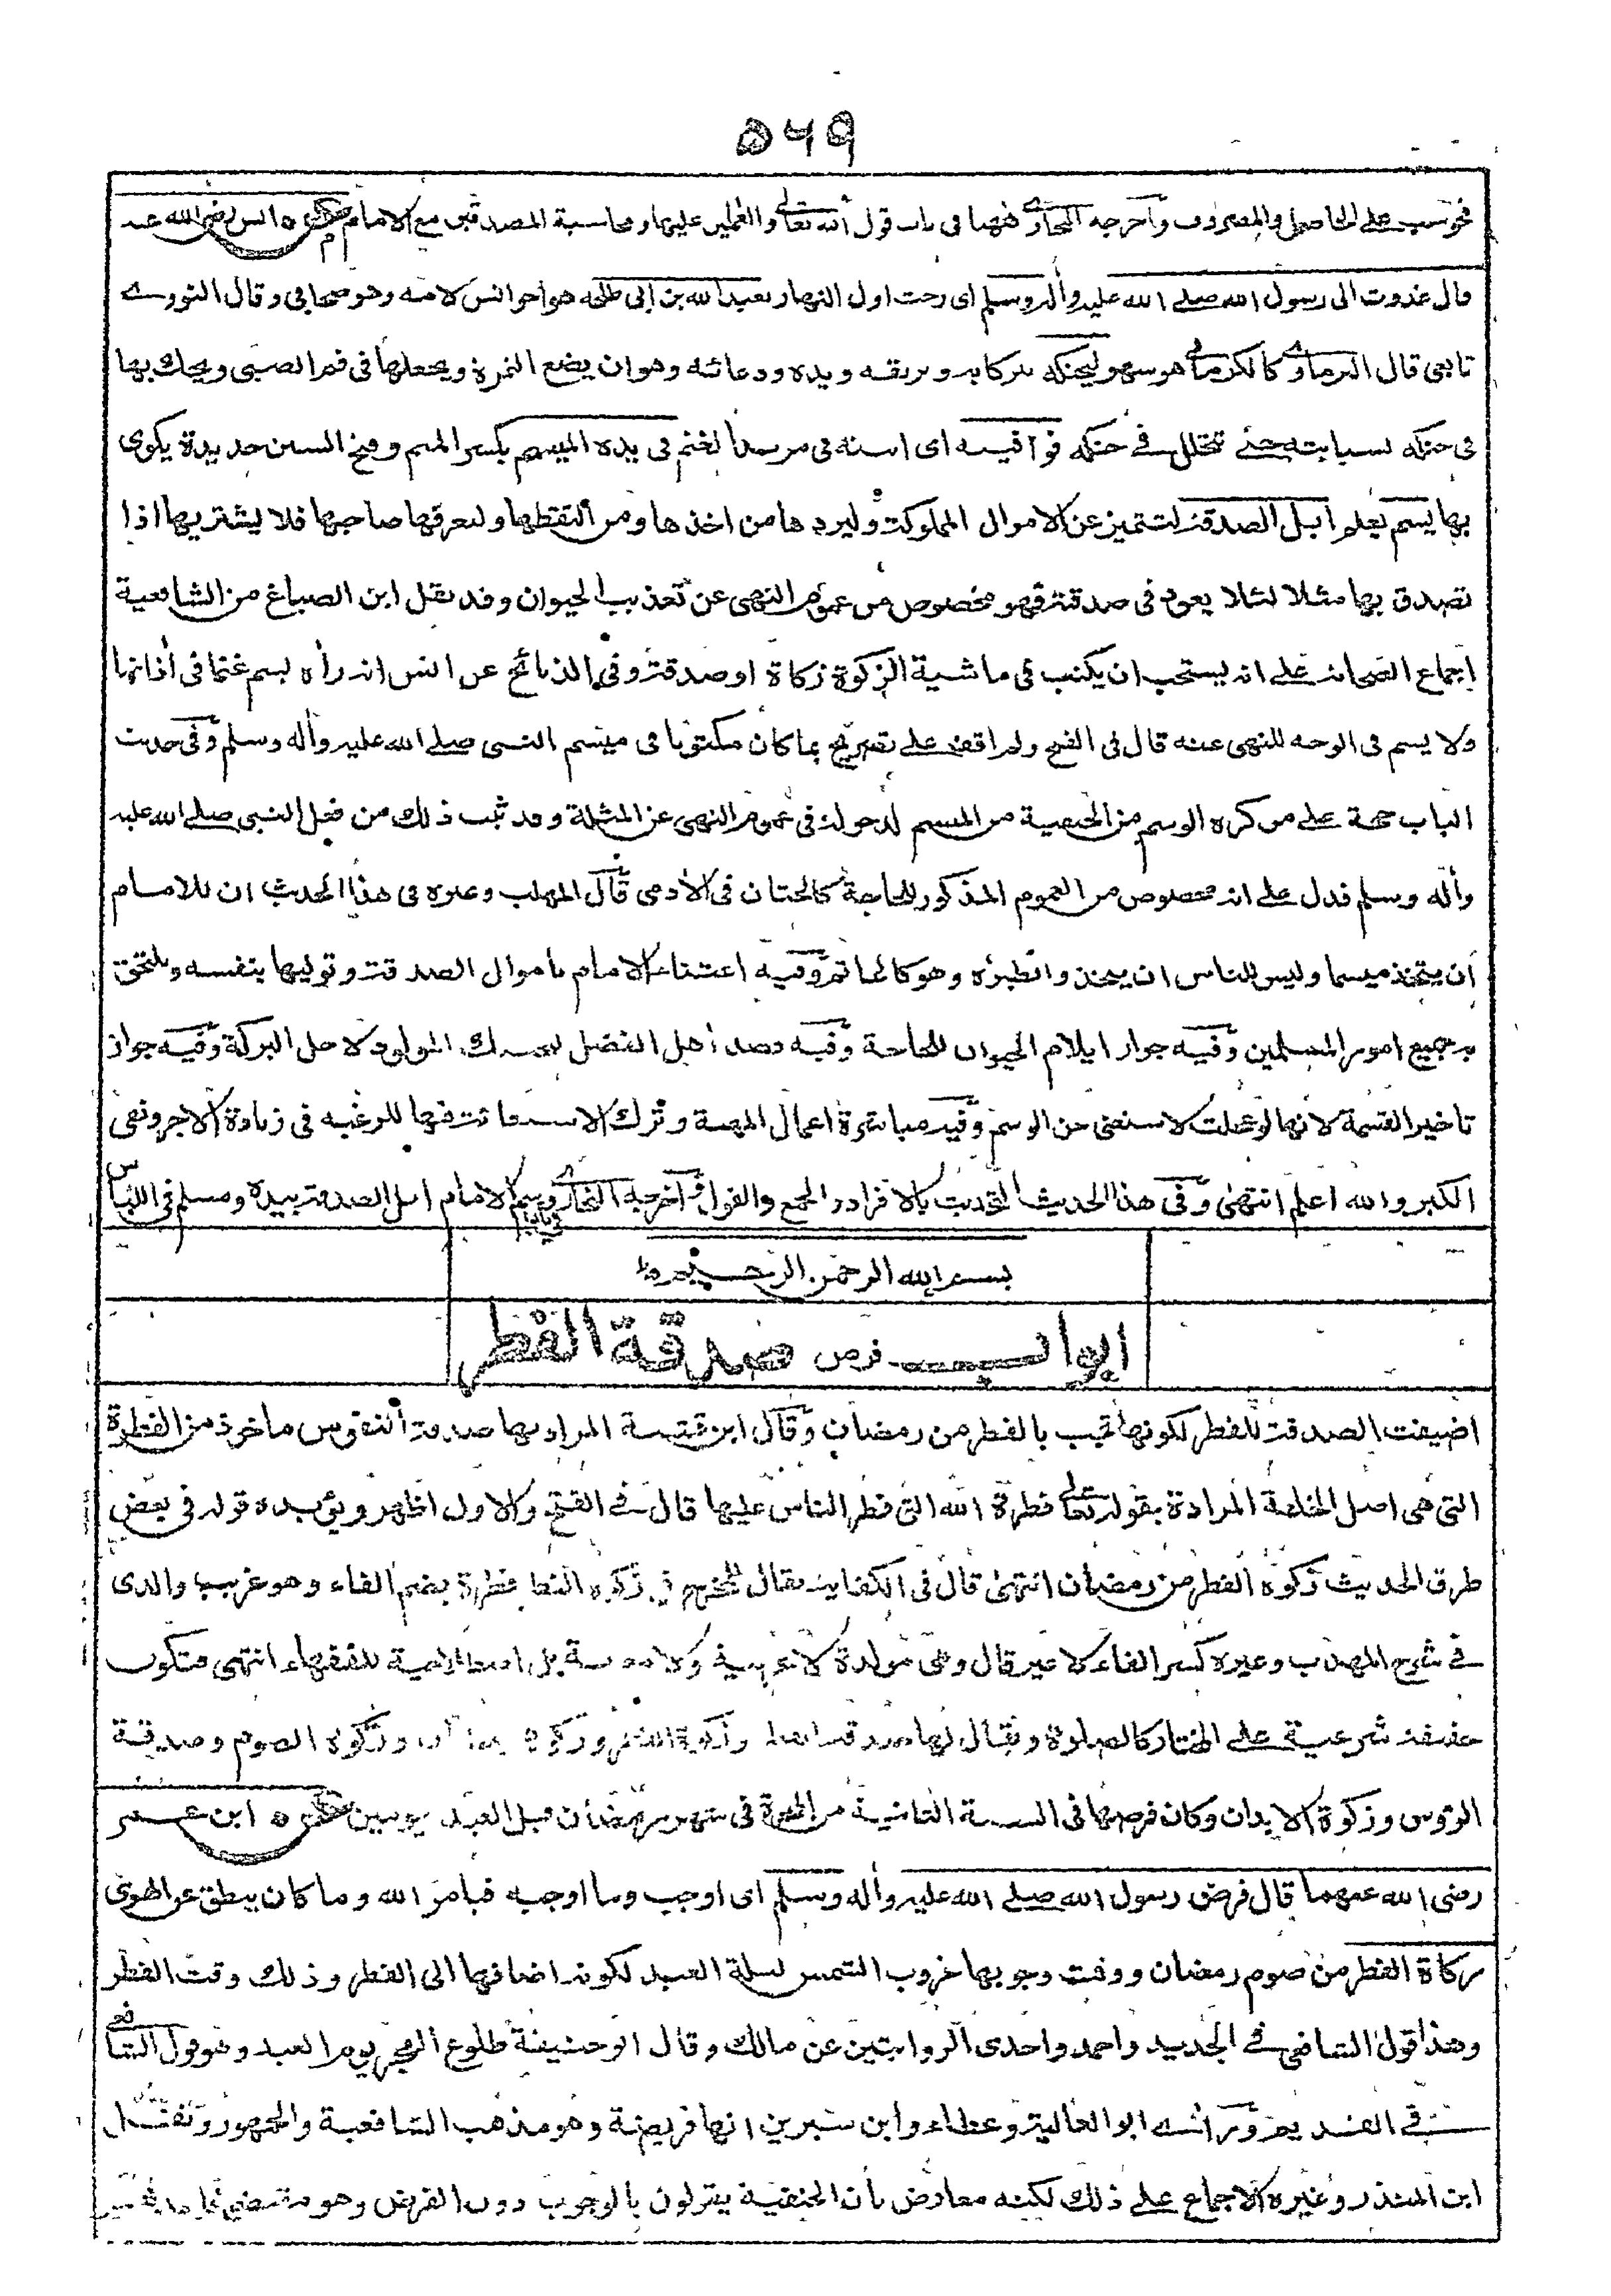 ٥٦٩
فحوسب على الحاصل والمصروف وأخرجه البخارى فهما فى باب قول الله تعالى والعاملين عليها ومحاسبة المصدقين مع الامام انس رضى الله عنه
قال غدوت الى رسول الله صلے الله عليه وأله وسلم اى رحت اول النهار بعبد الله بن ابى طلحة هو اخو انس لامه وهو صحابى وقال النووے
تابعى قال البرماوے كالكرمانے هو سهو ليحنكه تبركا به وبريقه ويده ودعائه وهو ان يضع التمرة ويجعلها فى فم الصبى ويحك بها
فى حنكه بسبابته حتے تتحلل فے حنكه فوافيته اى اتيته فى مربد الغنم فى يده الميسم بكسر الميم وفتح السين حديدة يكوى
بها يسم يعلم ابل الصدقة لتتميز عن الاموال المملوكة وليردها من اخذها ومن التقطها وليعرفها صاحبها فلا يشتريها اذا
تصدق بها مثلا لئلا يعود فى صدقته فهو مخصوص من عموم النهى عن تعذيب الحيوان وقد نقل ابن الصباغ من الشافعية
اجماع الصحابة علے انه يستحب ان يكتب فى ماشية الزكوة زكاة او صدقة وفى الذبائح عن انس انه رأه يسم غنما فى أذانها
ولا يسم فى الوجه للنهى عنه قال فى الفتح ولم اقف علے تصريح بما كان مكتوبا فى ميسم النبى صلے الله عليه وأله وسلم وفى حديث
الباب حجة علے من كره الوسم من الحنفية من الميسم لدخوله فى عموم النهى عن المثلة وقد ثبت ذلك من فعل النبى صلے الله عليه
وأله وسلم فدل علے انه مخصوص من العموم المذكور للحاجة كالختان فى الأدمى قال المهلب وغيره فى هذا الحديث ان للامام
أن يتخذ ميسما وليس للناس ان يتخذوا نظيره وهو كالخاتم وفيه اعتناء الامام باموال الصدقة وتوليها بنفسه ويلتحق
به جميع امور المسلمين وفيه جواز ايلام الحيوان للحاجة وفيه قصد أهل الفضل لتحنيك المولود لاجل البركة وفيه جواز
تاخير القسمة لانها لو عجلت لاستغنى عن الوسم وفيه مباشرة اعمال المهنة وترك الاستعانة فيها للرغبة فى زيادة الاجر ونفى
الكبر والله اعلم انتهى وفى هذا الحديث التحديث بالافراد والجمع والقول واخرجه البخارى فى باب وسم الامام ابل الصدقة بيده ومسلم فى اللباس
بسم الله الرحمن الرحيم
ابواب فرض صدقة الفطر
اضيفت الصدقة للفطر لكونها تجب بالفطر من رمضان وقال ابن قتيبة المراد بها صدقة النفوس ماخوذ من الفطرة
التى هى اصل الخلقة المرادة بقوله تعالى فطرة الله التى فطر الناس عليها قال فے الفتح والاول اظهر ويؤيده قوله فى بعض
طرق الحديث زكوة الفطر من رمضان انتهى قال فى الكفاية يقال للمخرج فى زكوة الفطر فطرة بضم الفاء وهو غريب والذى
فے شرح المهذب وغيره كسر الفاء لا غير قال وهى مولدة لا عربية ولا معربة بل اصطلاحية للفقهاء انتهى فتكون
حقيقة شرعية علے المختار كالصلوة ويقال لها صدقة الفطر وزكوة الفطر وزكوة رمضان وزكوة الصوم وصدقة
الرؤس وزكوة الابدان وكان فرضها فى السنة الثانية من الهجرة فى شهر رمضان قبل العيد بيومين ابن عمر
رضى الله عنهما قال فرض رسول الله صلے الله عليه وأله وسلم اى اوجب وما اوجبه فبامر الله وما كان ينطق عن الهوى
زكاة الفطر من صوم رمضان ووقت وجوبها غروب الشمس ليلة العيد لكونه اضافها الى الفطر وذلك وقت الفطر
وهذا قول الشافعى فے الجديد واحمد واحدى الروايتين عن مالك وقال ابو حنيفة طلوع الفجر يوم العيد وهو قول الشافعى
فے القديم ورأى ابو العالية وعطاء وابن سيرين انها فريضة وهو مذهب الشافعية والجمهور ونقل
ابن المنذر وغيره الاجماع علے ذلك لكنه معارض بأن الحنفية يقولون بالوجوب دون الفرض وهو مقتضى